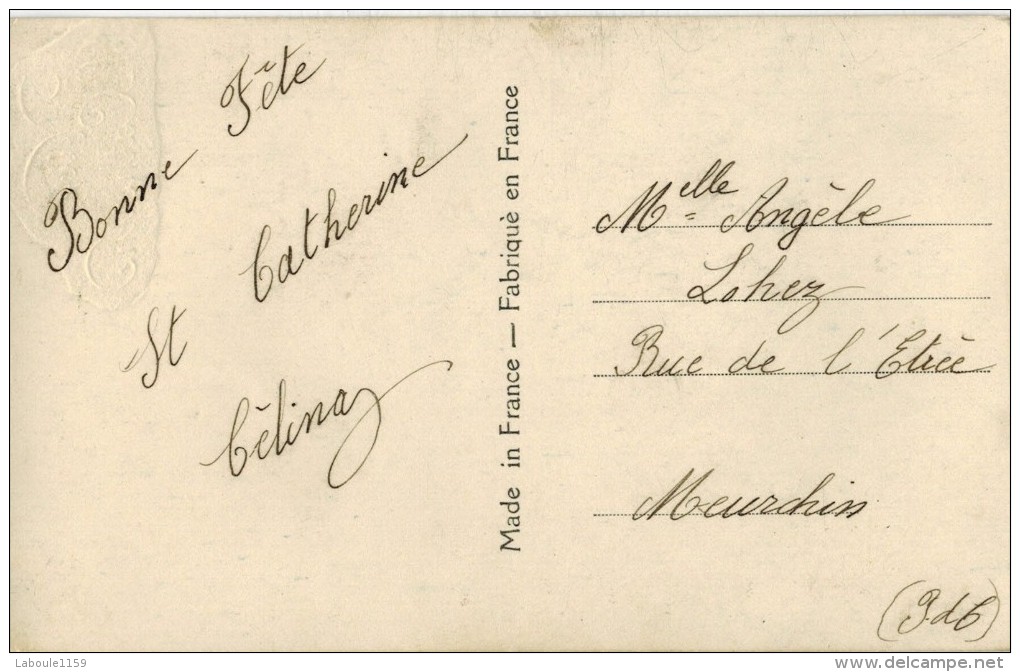 Bonne Fête
St Catherine
Célina
Made in France — Fabriquè en France
Melle Angèle
Lohez
Rue de l'Etrée
Meurchin
(P.d.C)
Laboule1159
www.delcampe.net